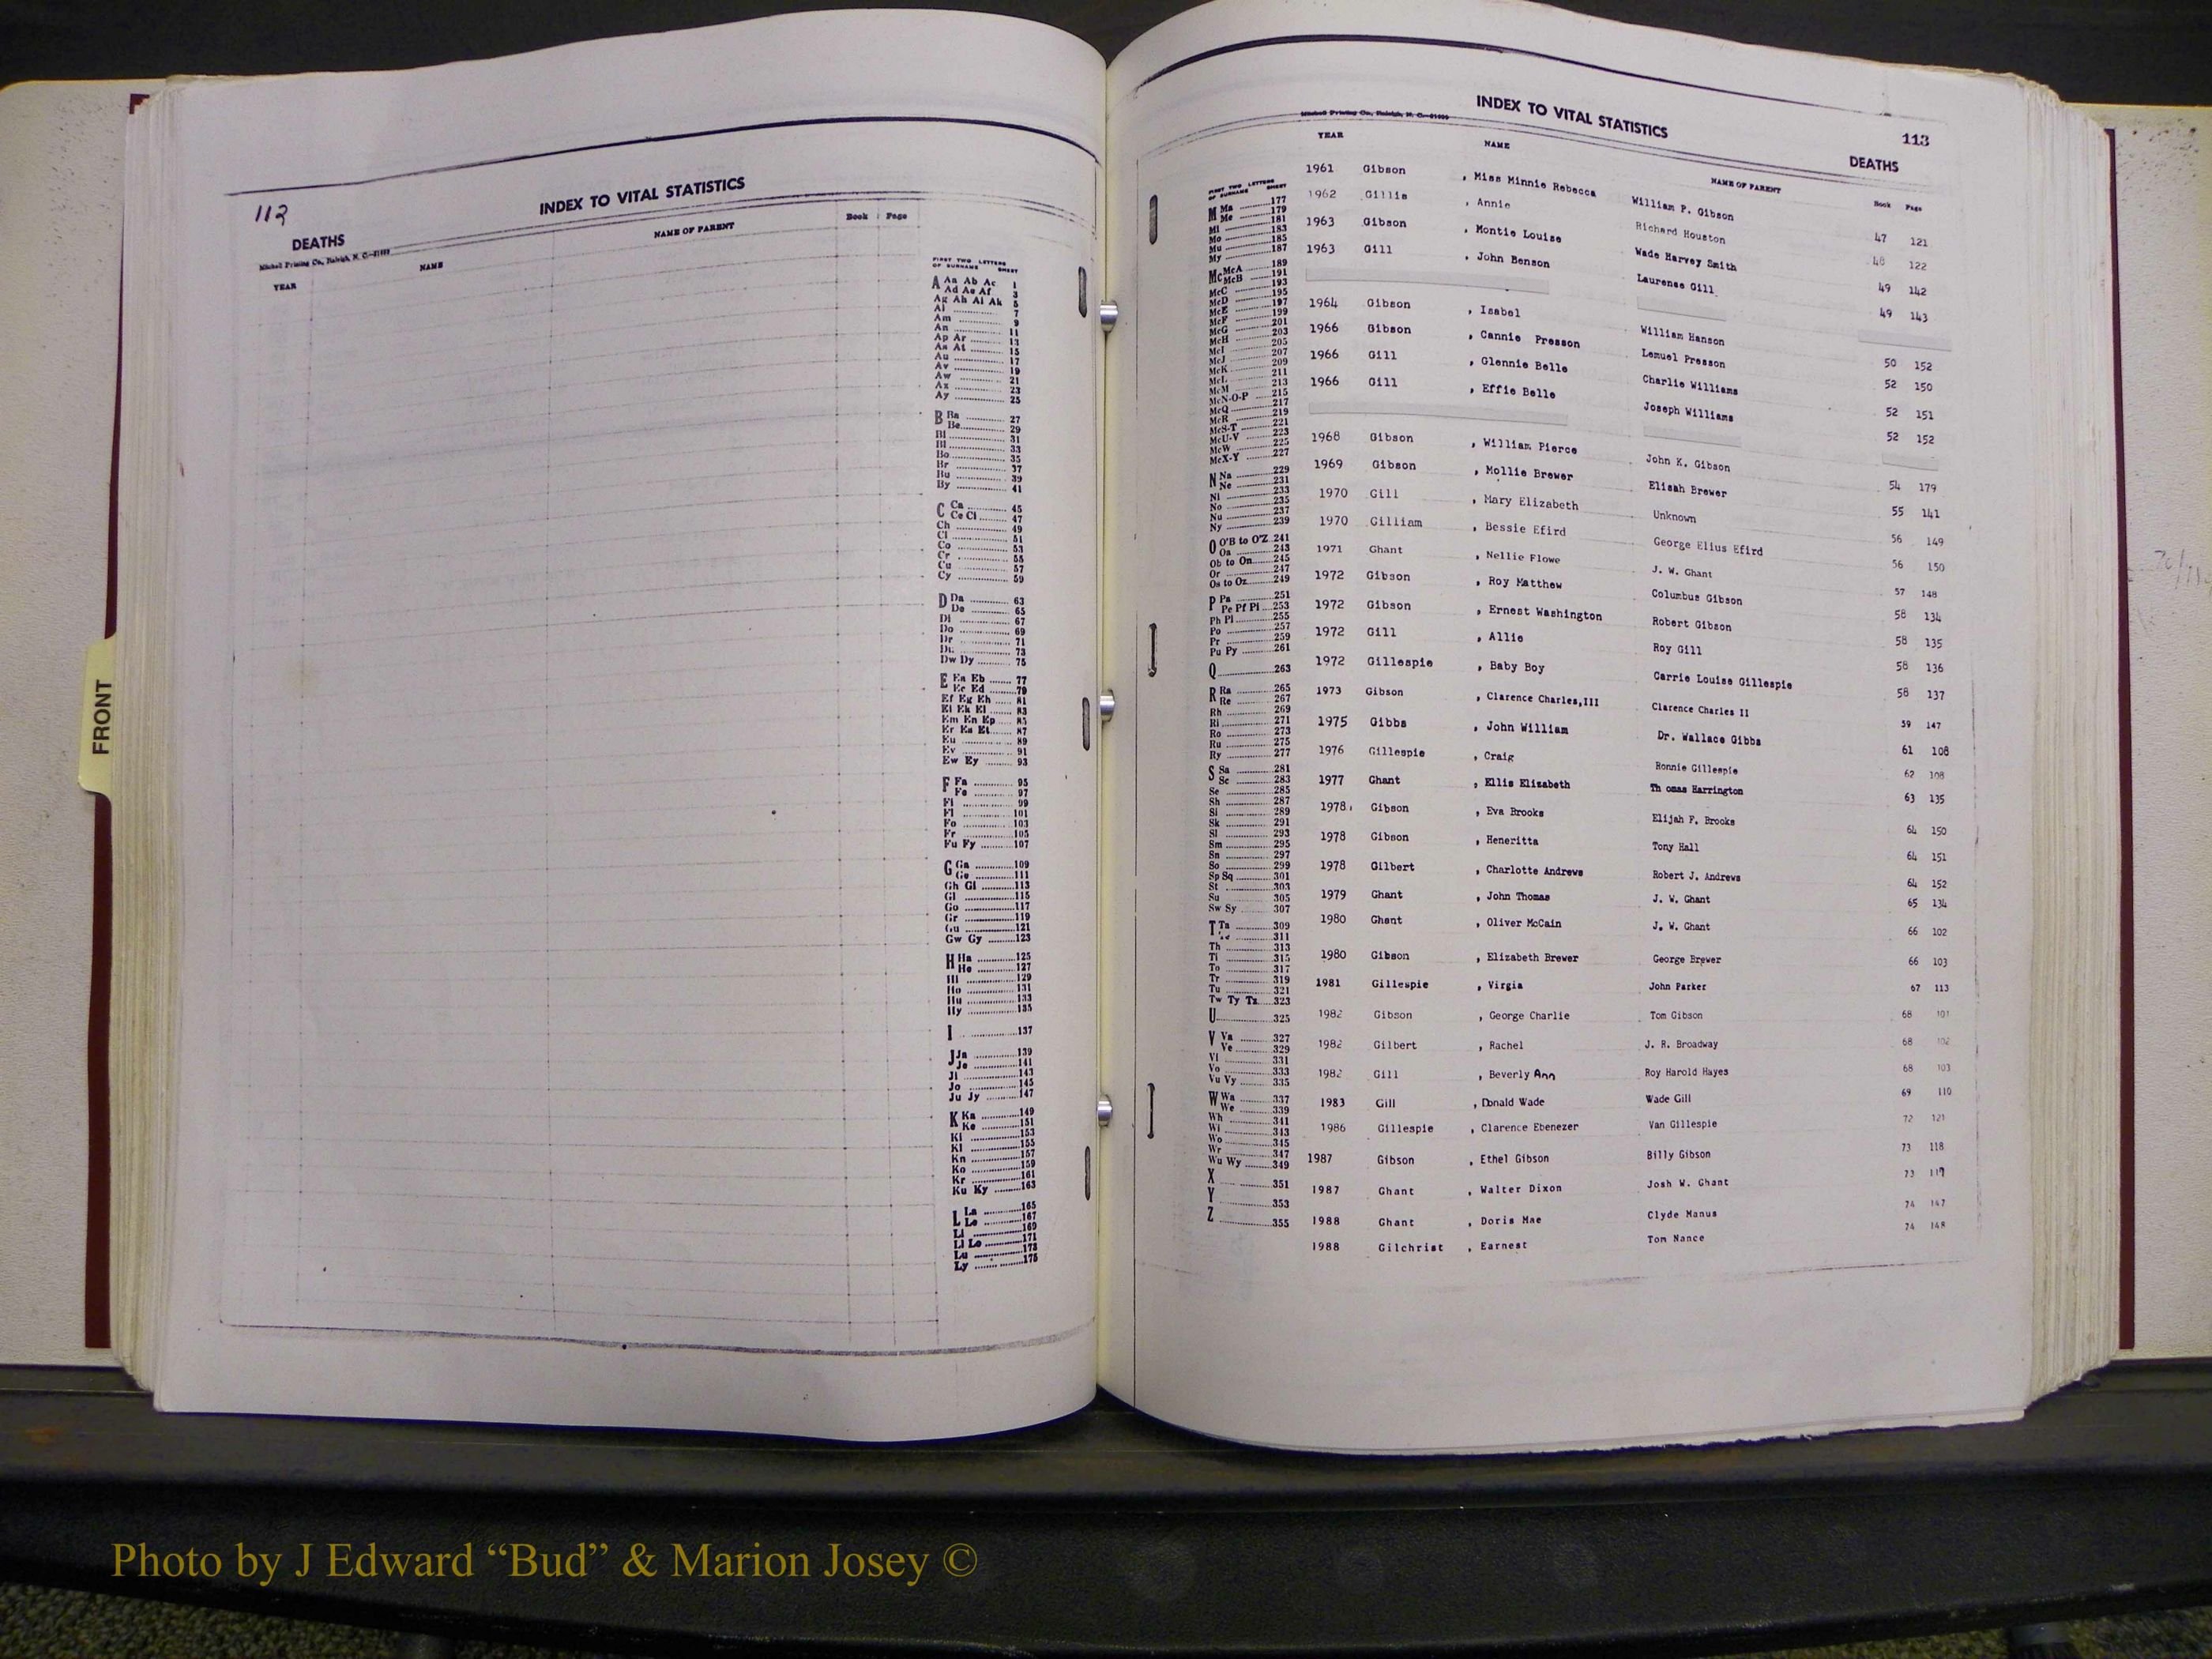 FRONT
112
INDEX TO VITAL STATISTICS
DEATHS
Mitchell Printing Co., Raleigh, N. C.
YEAR NAME NAME OF PARENT Book Page
FIRST TWO LETTERS
OF SURNAME SHEET
A Aa Ab Ac 1
Ad Ae Af 3
Ag Ah Ai Ak 5
Al 7
Am 9
An 11
Ap Ar 13
As At 15
Au 17
Av 19
Aw 21
Ax 23
Ay 25
B Ba 27
Be 29
Bi 31
Bl 33
Bo 35
Br 37
Bu 39
By 41
C Ca 45
Ce Ci 47
Ch 49
Cl 51
Co 53
Cr 55
Cu 57
Cy 59
D Da 63
De 65
Di 67
Do 69
Dr 71
Du 73
Dw Dy 75
E Ea Eb 77
Ec Ed 79
Ef Eg Eh 81
Ei Ek El 83
Em En Ep 85
Er Es Et 87
Eu 89
Ev 91
Ew Ey 93
F Fa 95
Fe 97
Fi 99
Fl 101
Fo 103
Fr 105
Fu Fy 107
G Ga 109
Ge 111
Gh Gi 113
Gl 115
Go 117
Gr 119
Gu 121
Gw Gy 123
H Ha 125
He 127
Hi 129
Ho 131
Hu 133
Hy 135
I 137
J Ja 139
Je 141
Ji 143
Jo 145
Ju Jy 147
K Ka 149
Ke 151
Ki 153
Kl 155
Kn 157
Ko 159
Kr 161
Ku Ky 163
L La 165
Le 167
Li 169
Ll Lo 171
Lu 173
Ly 175
INDEX TO VITAL STATISTICS
113
Mitchell Printing Co., Raleigh, N. C.
DEATHS
YEAR NAME NAME OF PARENT Book Page
FIRST TWO LETTERS
OF SURNAME SHEET
M Ma 177
Me 179
Mi 181
Mo 183
Mu 185
My 187
Mc McA 189
McB 191
McC 193
McD 195
McE 197
McF 199
McG 201
McH 203
McI 205
McJ 207
McK 209
McL 211
McM 213
McN-O-P 215
McQ 217
McR 219
McS-T 221
McU-V 223
McW 225
McX-Y 227
N Na 229
Ne 231
Ni 233
No 235
Nu 237
Ny 239
O O'B to O'Z 241
Oa 243
Ob to On 245
Or 247
Os to Oz 249
P Pa 251
Pe Pf Pi 253
Ph Pl 255
Po 257
Pr 259
Pu Py 261
Q 263
R Ra 265
Re 267
Rh 269
Ri 271
Ro 273
Ru 275
Ry 277
S Sa 281
Sc 283
Se 285
Sh 287
Si 289
Sk 291
Sl 293
Sm 295
Sn 297
So 299
Sp Sq 301
St 303
Su 305
Sw Sy 307
T Ta 309
Te 311
Th 313
Ti 315
To 317
Tr 319
Tu 321
Tw Ty Tz 323
U 325
V Va 327
Ve 329
Vi 331
Vo 333
Vu Vy 335
W Wa 337
We 339
Wh 341
Wi 343
Wo 345
Wr 347
Wu Wy 349
X 351
Y 353
Z 355
1961 Gibson , Miss Minnie Rebecca William P. Gibson 47 121
1962 Gillis , Annie Richard Houston 48 122
1963 Gibson , Montie Louise Wade Harvey Smith 49 142
1963 Gill , John Benson Laurense Gill 49 143
1964 Gibson , Isabel William Hanson 50 152
1966 Gibson , Cannie Presson Lemuel Presson 52 150
1966 Gill , Glennie Belle Charlie Williams 52 151
1966 Gill , Effie Belle Joseph Williams 52 152
1968 Gibson , William Pierce John K. Gibson 54 179
1969 Gibson , Mollie Brewer Elisah Brewer 55 141
1970 Gill , Mary Elizabeth Unknown 56 149
1970 Gilliam , Bessie Efird George Elius Efird 56 150
1971 Ghant , Nellie Flowe J. W. Ghant 57 148
1972 Gibson , Roy Matthew Columbus Gibson 58 134
1972 Gibson , Ernest Washington Robert Gibson 58 135
1972 Gill , Allie Roy Gill 58 136
1972 Gillespie , Baby Boy Carrie Louise Gillespie 58 137
1973 Gibson , Clarence Charles,III Clarence Charles II 59 147
1975 Gibbs , John William Dr. Wallace Gibbs 61 108
1976 Gillespie , Craig Ronnie Gillespie 62 108
1977 Ghant , Ellis Elizabeth Th omas Harrington 63 135
1978 Gibson , Eva Brooks Elijah F. Brooks 64 150
1978 Gibson , Heneritta Tony Hall 64 151
1978 Gilbert , Charlotte Andrews Robert J. Andrews 64 152
1979 Ghant , John Thomas J. W. Ghant 65 134
1980 Ghant , Oliver McCain J. W. Ghant 66 102
1980 Gibson , Elizabeth Brewer George Brewer 66 103
1981 Gillespie , Virgia John Parker 67 113
1982 Gibson , George Charlie Tom Gibson 68 101
1982 Gilbert , Rachel J. R. Broadway 68 102
1982 Gill , Beverly Ann Roy Harold Hayes 68 103
1983 Gill , Donald Wade Wade Gill 69 110
1986 Gillespie , Clarence Ebenezer Van Gillespie 72 121
1987 Gibson , Ethel Gibson Billy Gibson 73 118
1987 Ghant , Walter Dixon Josh W. Ghant 73 119
1988 Ghant , Doris Mae Clyde Manus 74 147
1988 Gilchrist , Earnest Tom Nance 74 148
Photo by J Edward “Bud” & Marion Josey ©